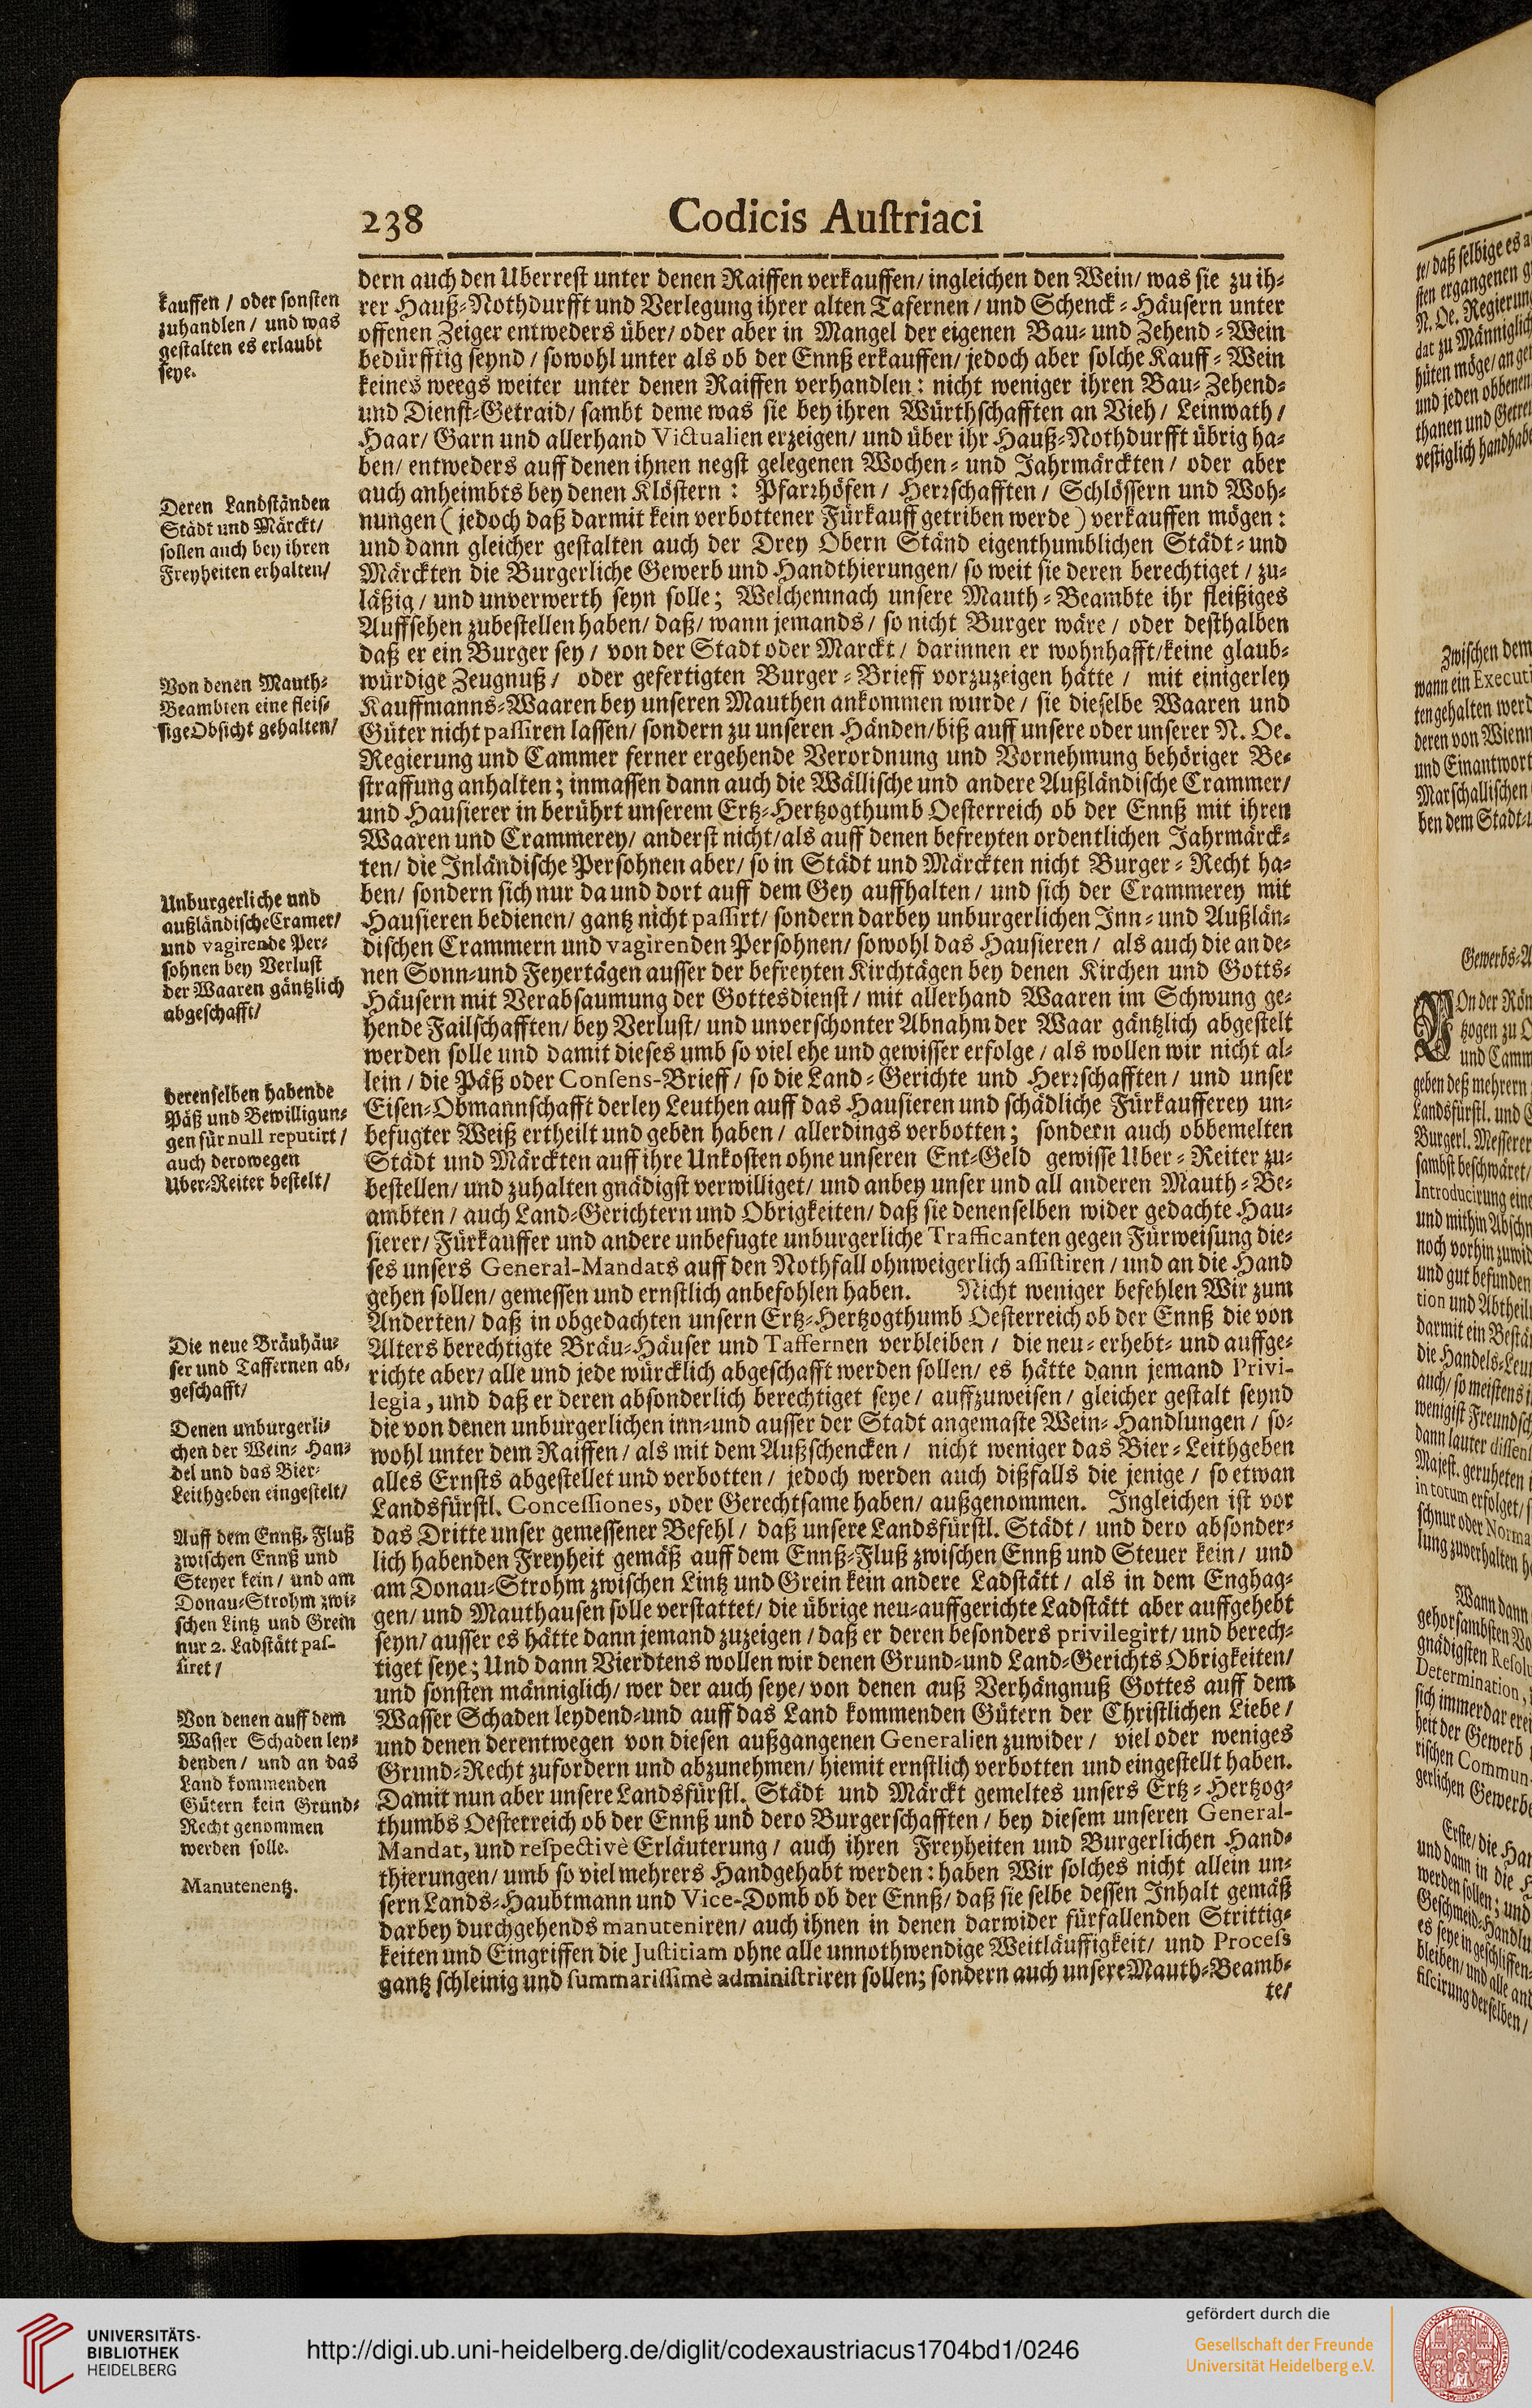 238 Codicis Austriaci
kauffen / oder sonsten
zuhandlen / und was
gestalten es erlaubt
seye.
Deren Landständen
Städt und Märckt/
sollen auch bey ihren
Freyheiten erhalten/
Von denen Mauth-
Beambten eine fleis-
sige Obsicht gehalten/
Unburgerliche und
außländische Cramer/
und vagirende Per-
sohnen bey Verlust
der Waaren gäntzlich
abgeschafft/
derenselben habende
Päß und Bewilligun-
gen für null reputirt /
auch derowegen
Uber-Reiter bestelt/
Die neue Bräuhäu-
ser und Taffernen ab-
geschafft/
Denen unburgerli-
chen der Wein- Han-
del und das Bier-
Leithgeben eingestelt/
Auff dem Ennß- Fluß
zwischen Ennß und
Steyer kein / und am
Donau-Strohm zwi-
schen Lintz und Grein
nur 2. Ladstätt pas-
siret /
Von denen auff dem
Wasser Schaden ley-
denden / und an das
Land kommenden
Gütern kein Grund-
Recht genommen
werden solle.
Manutenentz.
dern auch den Uberrest unter denen Raiffen verkauffen/ ingleichen den Wein/ was sie zu ih-
rer Hauß-Nothdurfft und Verlegung ihrer alten Tafernen / und Schenck-Häusern unter
offenen Zeiger entweders über/ oder aber in Mangel der eigenen Bau- und Zehend-Wein
bedürfftig seynd / sowohl unter als ob der Ennß erkauffen/ jedoch aber solche Kauff-Wein
keines weegs weiter unter denen Raiffen verhandlen: nicht weniger ihren Bau-Zehend-
und Dienst-Getraid/ sambt deme was sie bey ihren Würthschafften an Vieh / Leinwath /
Haar/ Garn und allerhand Victualien erzeigen/ und über ihr Hauß-Nothdurfft übrig ha-
ben/ entweders auff denen ihnen negst gelegenen Wochen- und Jahrmärckten / oder aber
auch anheimbts bey denen Klöstern : Pfarrhöfen / Herrschafften / Schlössern und Woh-
nungen ( jedoch daß darmit kein verbottener Fürkauff getriben werde ) verkauffen mögen:
und dann gleicher gestalten auch der Drey Obern Ständ eigenthumblichen Städt- und
Märckten die Burgerliche Gewerb und Handthierungen/ so weit sie deren berechtiget / zu-
läßig / und unverwerth seyn solle; Welchemnach unsere Mauth-Beambte ihr fleißiges
Auffsehen zubestellen haben/ daß/ wann jemands / so nicht Burger wäre / oder desthalben
daß er ein Burger sey / von der Stadt oder Marckt / darinnen er wohnhafft/keine glaub-
würdige Zeugnuß / oder gefertigten Burger-Brieff vorzuzeigen hätte / mit einigerley
Kauffmanns-Waaren bey unseren Mauthen ankommen wurde / sie dieselbe Waaren und
Güter nicht passiren lassen/ sondern zu unseren Händen/biß auff unsere oder unserer N. Oe.
Regierung und Cammer ferner ergehende Verordnung und Vornehmung behöriger Be-
straffung anhalten; inmassen dann auch die Wällische und andere Außländische Crammer/
und Hausierer in berührt unserem Ertz-Hertzogthumb Oesterreich ob der Ennß mit ihren
Waaren und Crammerey/ anderst nicht/als auff denen befreyten ordentlichen Jahrmärck-
ten/ die Inländische Persohnen aber/ so in Städt und Märckten nicht Burger-Recht ha-
ben/ sondern sich nur da und dort auff dem Gey auffhalten / und sich der Crammerey mit
Hausieren bedienen/ gantz nicht passirt/ sondern darbey unburgerlichen Inn- und Außlän-
dischen Crammern und vagirenden Persohnen/ sowohl das Hausieren / als auch die an de-
nen Sonn-und Feyertägen ausser der befreyten Kirchtägen bey denen Kirchen und Gotts-
Häusern mit Verabsaumung der Gottesdienst / mit allerhand Waaren im Schwung ge-
hende Failschafften/ bey Verlust/ und unverschonter Abnahm der Waar gäntzlich abgestelt
werden solle und damit dieses umb so viel ehe und gewisser erfolge / als wollen wir nicht al-
lein / die Päß oder Consens-Brieff / so die Land-Gerichte und Herrschafften / und unser
Eisen-Obmannschafft derley Leuthen auff das Hausieren und schädliche Fürkaufferey un-
befugter Weiß ertheilt und geben haben / allerdings verbotten; sondern auch obbemelten
Städt und Märckten auff ihre Unkosten ohne unseren Ent-Geld gewisse Uber-Reiter zu-
bestellen/ und zuhalten gnädigst verwilliget/ und anbey unser und all anderen Mauth-Be-
ambten / auch Land-Gerichtern und Obrigkeiten/ daß sie denenselben wider gedachte Hau-
sierer/ Fürkauffer und andere unbefugte unburgerliche Trafficanten gegen Fürweisung die-
ses unsers General-Mandats auff den Nothfall ohnweigerlich assistiren / und an die Hand
gehen sollen/ gemessen und ernstlich anbefohlen haben. Nicht weniger befehlen Wir zum
Anderten/ daß in obgedachten unsern Ertz-Hertzogthumb Oesterreich ob der Ennß die von
Alters berechtigte Bräu-Häuser und Taffernen verbleiben / die neu-erhebt- und auffge-
richte aber/ alle und jede würcklich abgeschafft werden sollen/ es hätte dann jemand Privi-
legia, und daß er deren absonderlich berechtiget seye/ auffzuweisen / gleicher gestalt seynd
die von denen unburgerlichen inn-und ausser der Stadt angemaste Wein-Handlungen / so-
wohl unter dem Raiffen / als mit dem Außschencken / nicht weniger das Bier-Leithgeben
alles Ernsts abgestellet und verbotten / jedoch werden auch dißfalls die jenige / so etwan
Landsfürstl. Concessiones, oder Gerechtsame haben/ außgenommen. Ingleichen ist vor
das Dritte unser gemessener Befehl / daß unsere Landsfürstl. Städt / und dero absonder-
lich habenden Freyheit gemäß auff dem Ennß-Fluß zwischen Ennß und Steuer kein / und
am Donau-Strohm zwischen Lintz und Grein kein andere Ladstätt / als in dem Enghag-
gen/ und Mauthausen solle verstattet/ die übrige neu-auffgerichte Ladstätt aber auffgehebt
seyn/ ausser es hätte dann jemand zuzeigen / daß er deren besonders privilegirt/ und berech-
tiget seye; Und dann Vierdtens wollen wir denen Grund-und Land-Gerichts Obrigkeiten/
und sonsten männiglich/ wer der auch seye/ von denen auß Verhängnuß Gottes auff dem
Wasser Schaden leydend-und auff das Land kommenden Gütern der Christlichen Liebe /
und denen derentwegen von diesen außgangenen Generalien zuwider / viel oder weniges
Grund-Recht zufordern und abzunehmen/ hiemit ernstlich verbotten und eingestellt haben.
Damit nun aber unsere Landsfürstl. Städt und Märckt gemeltes unsers Ertz-Hertzog-
thumbs Oesterreich ob der Ennß und dero Burgerschafften / bey diesem unseren General-
Mandat, und respectivè Erläuterung / auch ihren Freyheiten und Burgerlichen Hand-
thierungen/ umb so viel mehrers Handgehabt werden: haben Wir solches nicht allein un-
sern Lands-Haubtmann und Vice-Domb ob der Ennß/ daß sie selbe dessen Inhalt gemäß
darbey durchgehends manuteniren/ auch ihnen in denen darwider fürfallenden Strittig-
keiten und Eingriffen die Justitiam ohne alle unnothwendige Weitläuffigkeit/ und Process
gantz schleinig und summarissimè administriren sollen; sondern auch unsere Mauth-Beamb-
te/
UNIVERSITÄTS-
BIBLIOTHEK
HEIDELBERG
http://digi.ub.uni-heidelberg.de/diglit/codexaustriacus1704bd1/0246
gefördert durch die
Gesellschaft der Freunde
Universität Heidelberg e.V.